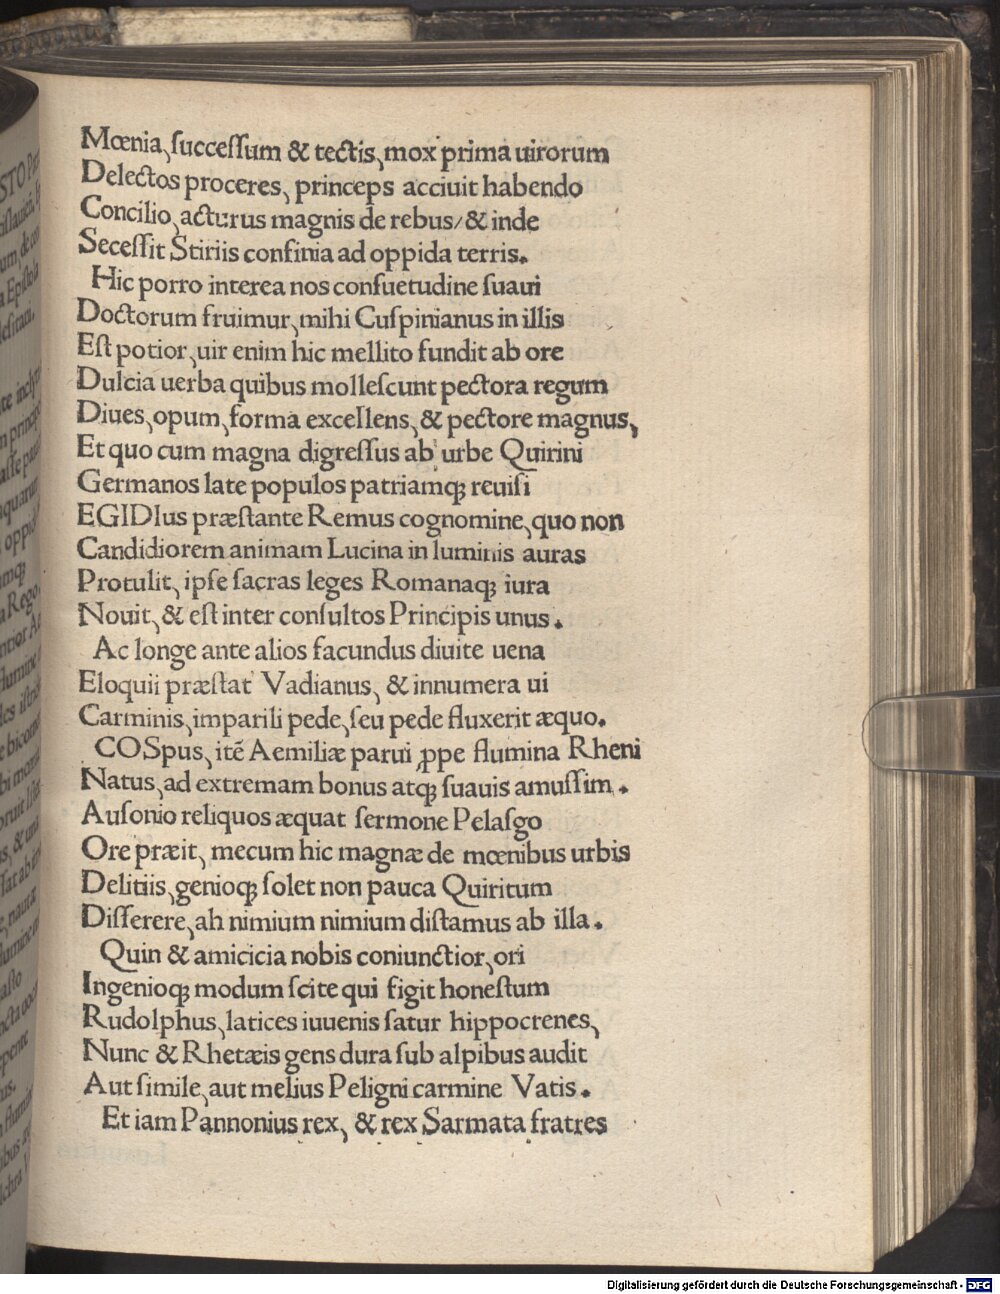 Mœnia, ſucceſſum & tectis, mox prima uirorum
Delectos proceres, princeps acciuit habendo
Concilio, acturus magnis de rebus/ & inde
Seceſſit Stiriis confinia ad oppida terris.
Hic porro interea nos conſuetudine ſuaui
Doctorum fruimur, mihi Cuſpinianus in illis
Eſt potior, uir enim hic mellito fundit ab ore
Dulcia uerba quibus molleſcunt pectora regum
Diues, opum, forma excellens, & pectore magnus,
Et quo cum magna digreſſus ab urbe Quirini
Germanos late populos patriamqꝫ reuiſi
EGIDIus præſtante Remus cognomine, quo non
Candidiorem animam Lucina in luminis auras
Protulit, ipſe ſacras leges Romanaqꝫ iura
Nouit, & eſt inter conſultos Principis unus.
Ac longe ante alios facundus diuite uena
Eloquii præſtat Vadianus, & innumera ui
Carminis, imparili pede, ſeu pede fluxerit æquo.
COSpus, itē Aemiliæ parui ꝓpe flumina Rheni
Natus, ad extremam bonus atqꝫ ſuauis amuſſim.
Auſonio reliquos æquat ſermone Pelaſgo
Ore præit, mecum hic magnæ de mœnibus urbis
Delitiis, genioqꝫ ſolet non pauca Quiritum
Diſſerere, ah nimium nimium diſtamus ab illa.
Quin & amicicia nobis coniunctior, ori
Ingenioqꝫ modum ſcite qui figit honeſtum
Rudolphus, latices iuuenis ſatur hippocrenes,
Nunc & Rhetæis gens dura ſub alpibus audit
Aut ſimile, aut melius Peligni carmine Vatis.
Et iam Pannonius rex, & rex Sarmata fratres
Digitalisierung gefördert durch die Deutsche Forschungsgemeinschaft - DFG